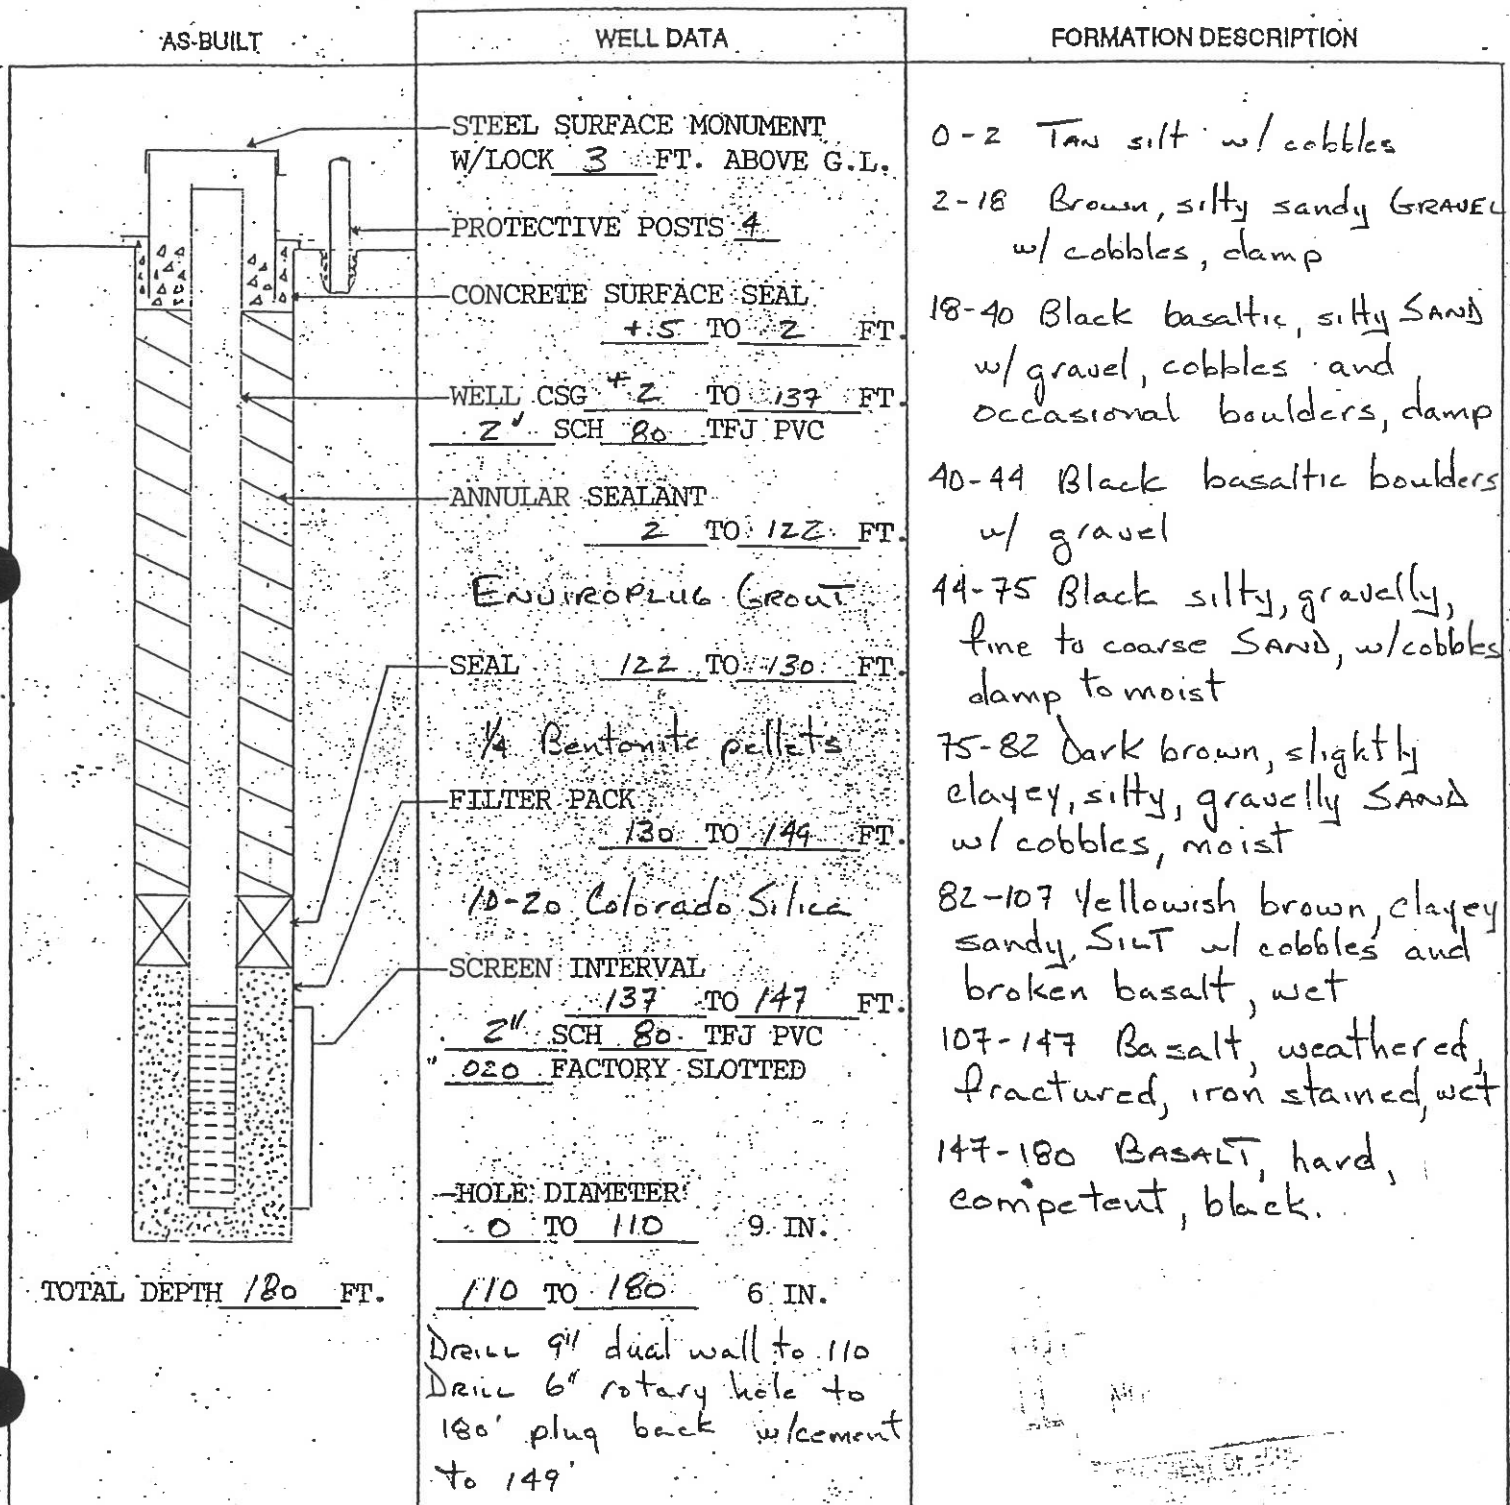 AS-BUILT
WELL DATA
FORMATION DESCRIPTION
STEEL SURFACE MONUMENT
W/LOCK 3 FT. ABOVE G.L.
PROTECTIVE POSTS 4
CONCRETE SURFACE SEAL
+.5 TO 2 FT.
WELL CSG +2 TO 137 FT.
2" SCH 80 TFJ PVC
ANNULAR SEALANT
2 TO 122 FT.
ENVIROPLUG GROUT
SEAL 122 TO 130 FT.
1/4 Bentonite pellets
FILTER PACK
130 TO 149 FT.
10-20 Colorado Silica
SCREEN INTERVAL
137 TO 147 FT.
2" SCH 80 TFJ PVC
".020 FACTORY SLOTTED
HOLE DIAMETER
0 TO 110 9 IN.
110 TO 180 6 IN.
DRILL 9" dual wall to 110
DRILL 6" rotary hole to
180' plug back w/cement
to 149'
TOTAL DEPTH 180 FT.
0-2 TAN silt w/ cobbles
2-18 Brown, silty sandy GRAVEL
w/ cobbles, damp
18-40 Black basaltic, silty SAND
w/ gravel, cobbles and
occasional boulders, damp
40-44 Black basaltic boulders
w/ gravel
44-75 Black silty, gravelly,
fine to coarse SAND, w/cobbles
damp to moist
75-82 Dark brown, slightly
clayey, silty, gravelly SAND
w/ cobbles, moist
82-107 Yellowish brown, clayey
sandy, SILT w/ cobbles and
broken basalt, wet
107-147 Basalt, weathered,
fractured, iron stained, wet
147-180 BASALT, hard,
competent, black.